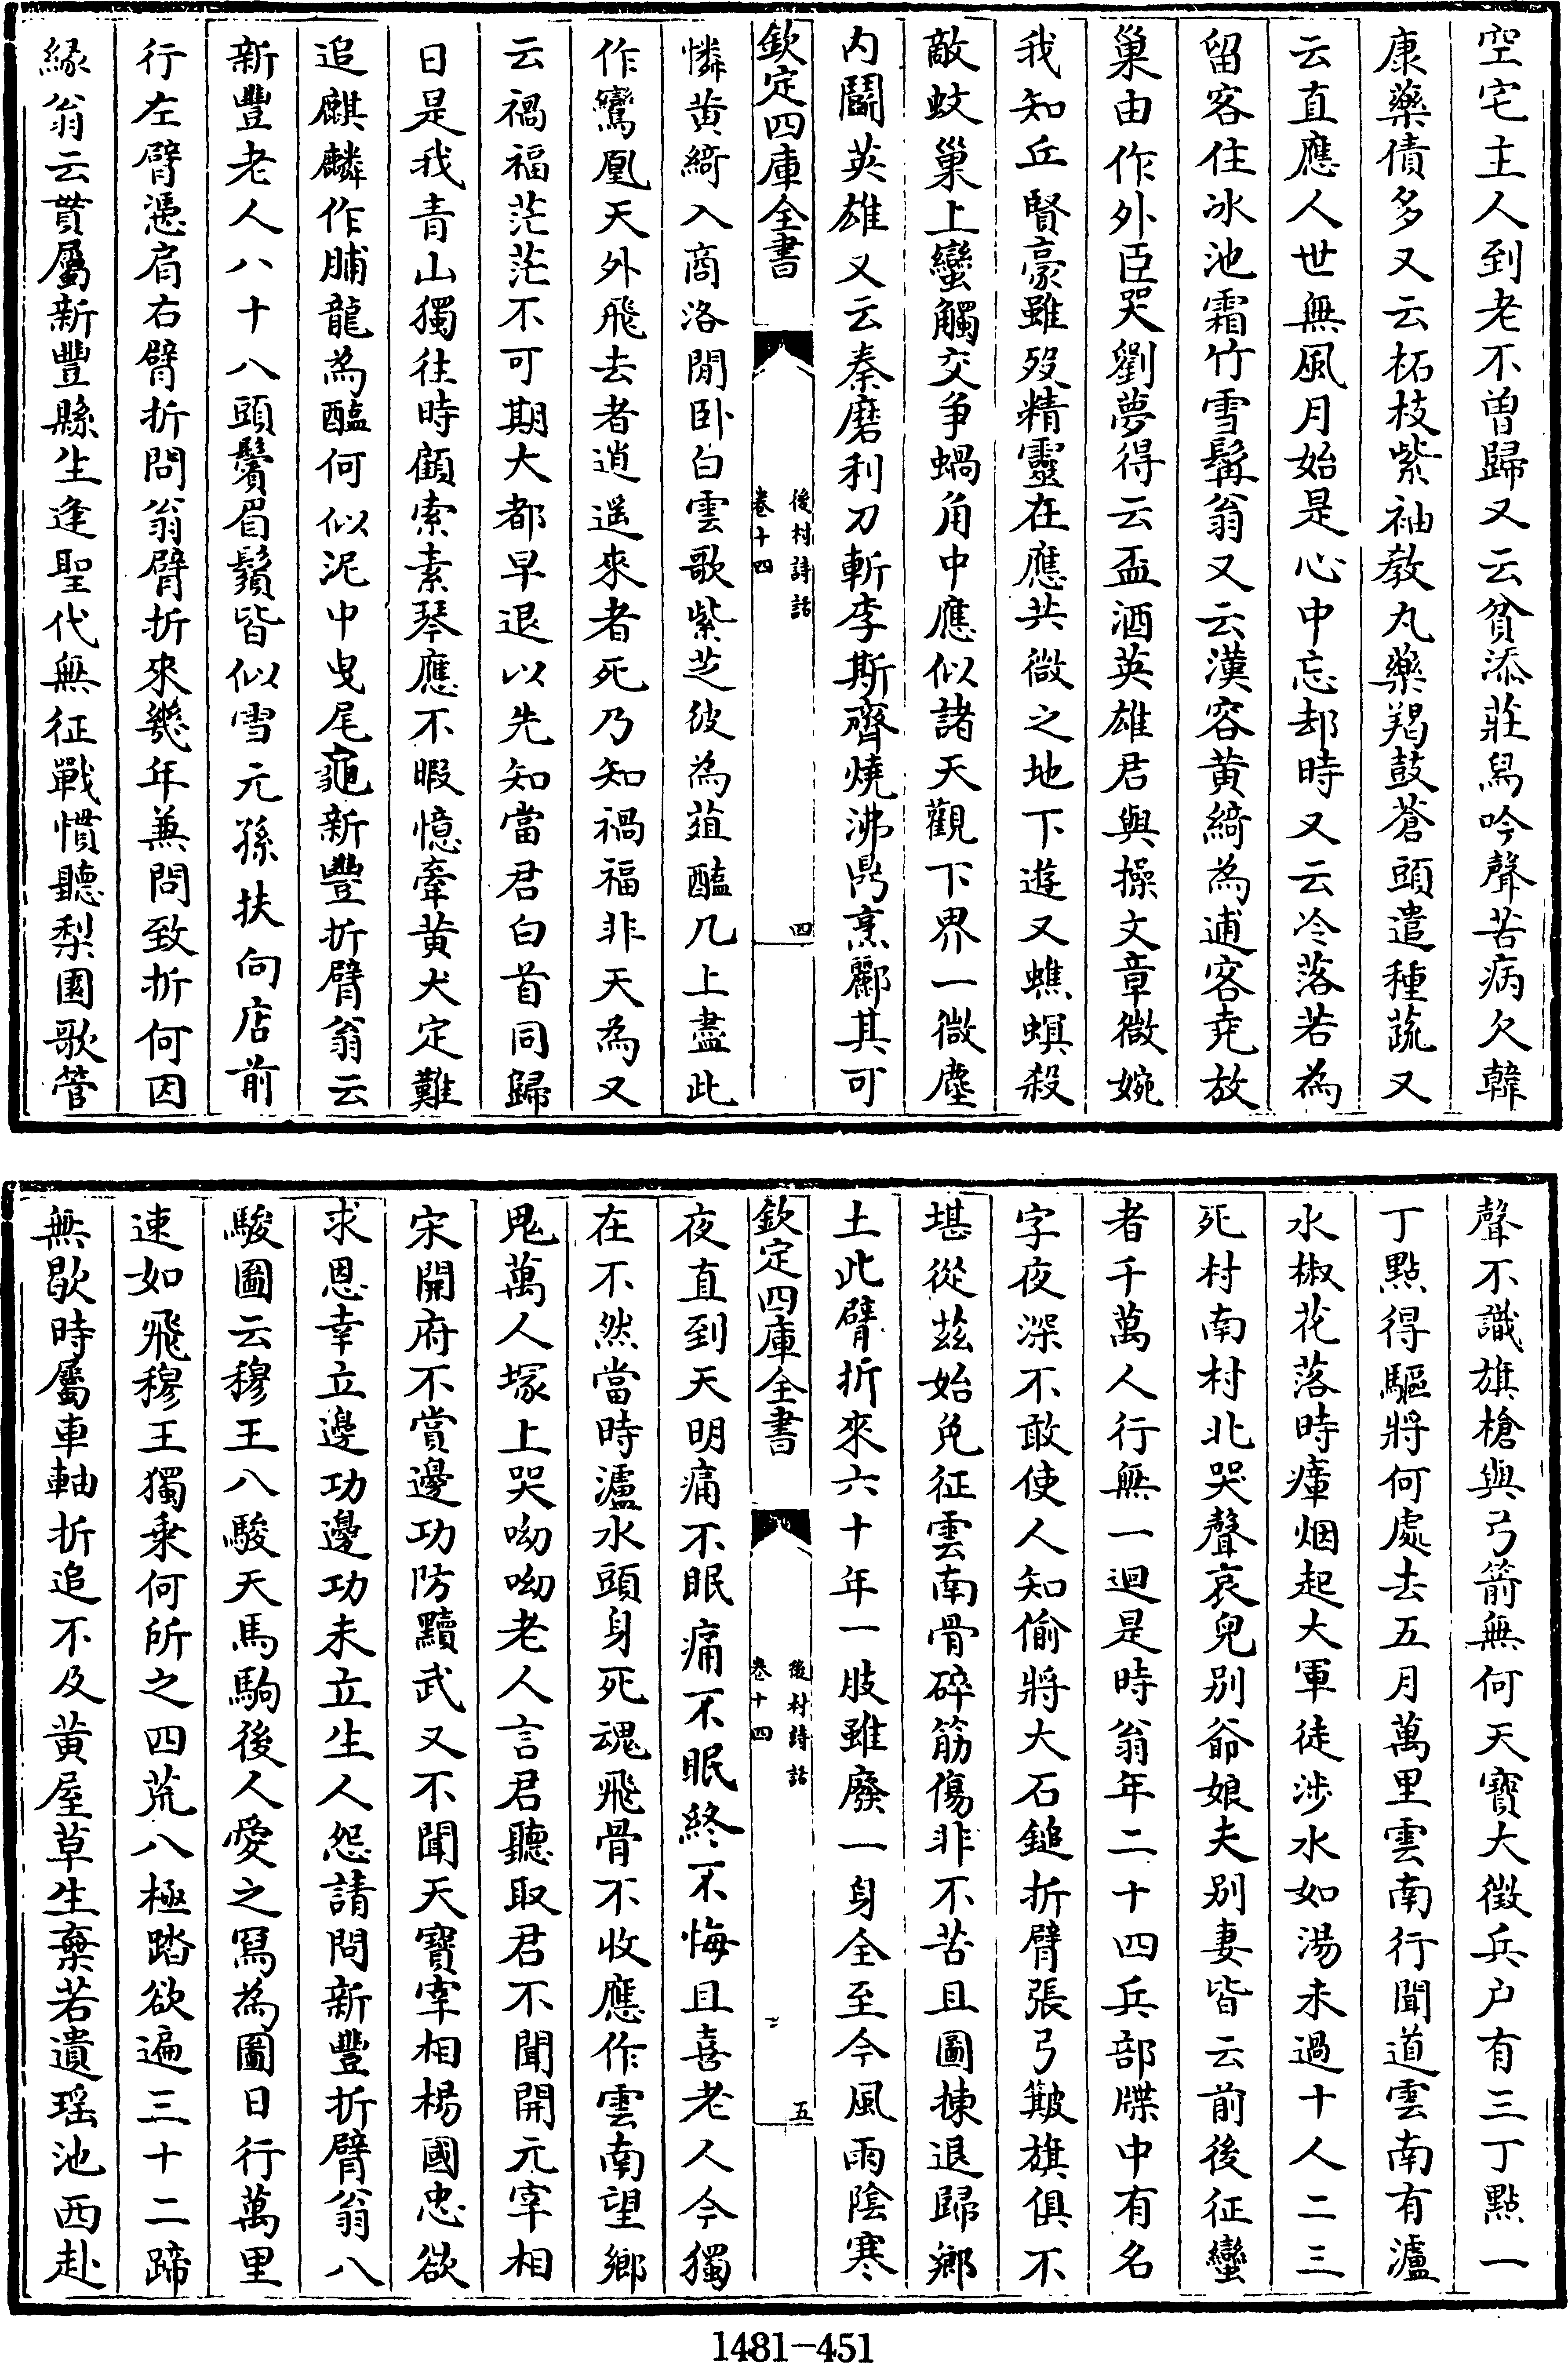 空宅主人到老不曽歸又云貧添莊舄吟聲苦病欠韓
康藥債多又云柘枝紫袖教丸藥羯鼓蒼頭遣種蔬又
云直應人世無風月始是心中忘却時又云冷落若為
留客住冰池霜竹雪髯翁又云漢容黄綺為逋客堯放
巢由作外臣哭劉夢得云盃酒英雄君與操文章微婉
我知丘賢豪雖歿精靈在應共微之地下遊又蟭螟殺
敵蚊巢上蠻觸交争蝸角中應似諸天觀下界一微塵
内鬭英雄又云秦磨利刀斬李斯齊燒沸鼎烹酈其可
欽定四庫全書
後村詩話
卷十四
四
憐黄綺入商洛閒卧白雲歌紫芝彼為葅醢几上盡此
作鸞凰天外飛去者逍遥來者死乃知禍福非天為又
云禍福茫茫不可期大都早退以先知當君白首同歸
日是我青山獨往時顧索素琴應不暇憶牽黄犬定難
追麒麟作脯龍為醢何似泥中曳尾龜新豐折臂翁云
新豐老人八十八頭鬢眉鬚皆似雪元孫扶向店前
行左臂憑肩右臂折問翁臂折來幾年兼問致折何因
緣翁云貫屬新豐縣生逢聖代無征戰慣聽梨園歌管
聲不識旗槍與弓箭無何天寶大徴兵户有三丁點一
丁點得驅將何處去五月萬里雲南行聞道雲南有瀘
水椒花落時瘴烟起大軍徒涉水如湯未過十人二三
死村南村北哭聲哀兒别爺娘夫别妻皆云前後征蠻
者千萬人行無一迴是時翁年二十四兵部牒中有名
字夜深不敢使人知偷將大石鎚折臂張弓簸旗俱不
堪從茲始免征雲南骨碎筋傷非不苦且圖揀退歸鄉
土此臂折來六十年一肢雖廢一身全至今風雨陰寒
欽定四庫全書
後村詩話
卷十四
五
夜直到天明痛不眠痛不眠終不悔且喜老人今獨
在不然當時瀘水頭身死魂飛骨不收應作雲南望鄉
鬼萬人塚上哭呦呦老人言君聽取君不聞開元宰相
宋開府不賞邊功防黷武又不聞天寶宰相楊國忠欲
求恩幸立邊功邊功未立生人怨請問新豐折臂翁八
駿圖云穆王八駿天馬駒後人愛之寫為圖日行萬里
速如飛穆王獨乗何所之四荒八極踏欲遍三十二蹄
無歇時屬車軸折追不及黄屋草生棄若遺瑶池西赴
1481-451